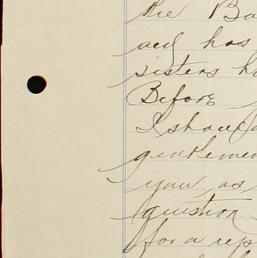 the Ba
and has
sisters h
Before
I should
gentlemen
your ad
question
for a rep